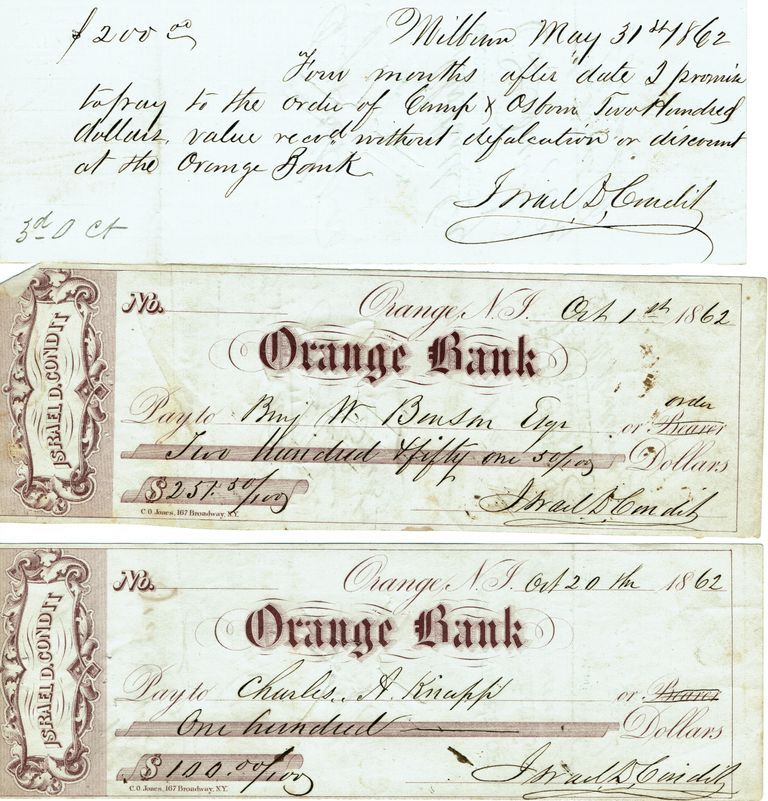 $200 00
Milburn May 31st 1862
Four months after date I promise
to pay to the order of Camp & Osborn Two Hundred
dollars, value recd without defalcation or discount
at the Orange Bank
Israel D. Condit
3d O ct
ISRAEL D. CONDIT
No.
Orange, N.J. Oct 1st 1862
Orange Bank
order
Pay to Benj W Benson Esqr or Bearer
Two hundred & fifty one 50/100 Dollars
$251.50/100
C.O. Jones, 167 Broadway, N.Y.
Israel D. Condit
ISRAEL D. CONDIT
No.
Orange, N.J. Oct 20th 1862
Orange Bank
Pay to Charles. A. Knapp or Bearer
One hundred Dollars
$100.00/100
C.O. Jones, 167 Broadway, N.Y.
Israel D. Condit